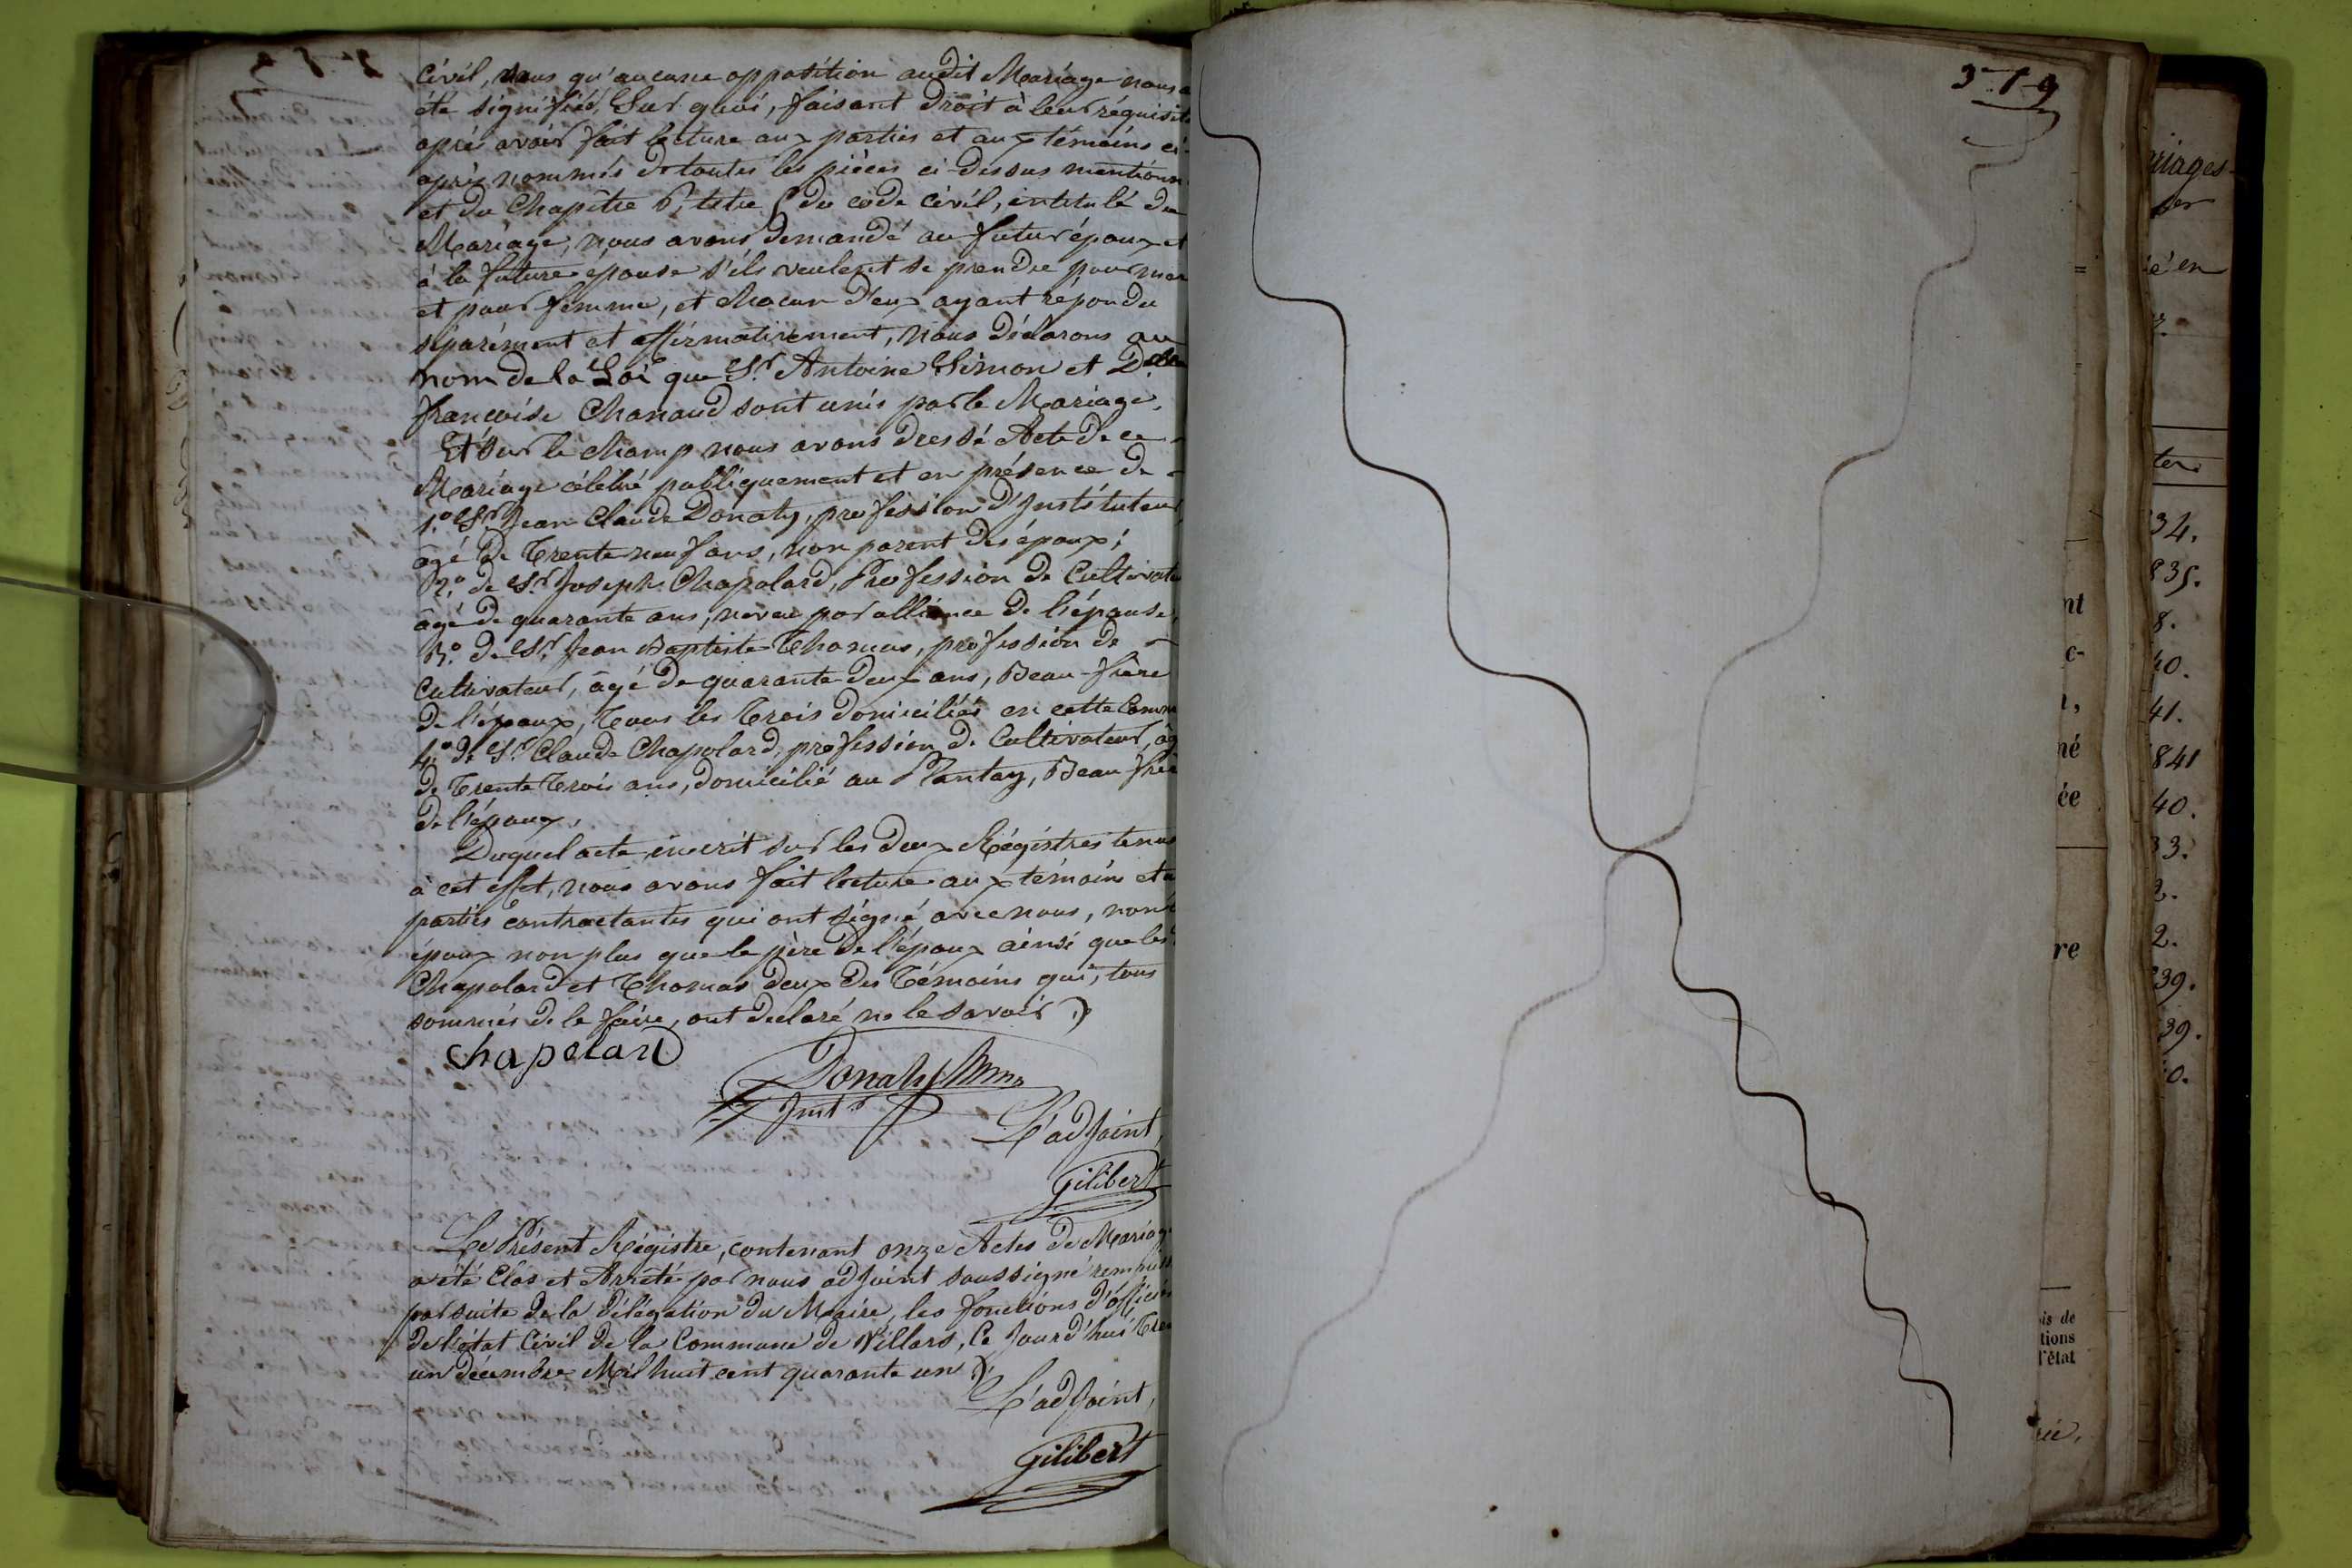 civil, sans qu'aucune opposition audit Mariage nous a
été signifiée, Sur quoi, faisant droit à leur réquisit
après avoir fait lecture aux parties et aux témoins ci-
après nommés de toutes les pièces ci-dessus mentionn
et du Chapitre titre du code civil, intitulé du
Mariage, nous avons demandé au futur époux et
à la future épouse s'ils veulent se prendre pour mar
et pour femme, et chacun d'eux ayant répondu
séparément et affirmativement, nous déclarons au
nom de la Loi que Sr. Antoine Simon et Delle
françoise Chanaud sont unis par le Mariage.
Et sur le champ nous avons dressé Acte de ce
Mariage célébré publiquement et en présence de
1.º Sr. Jean Claude Donaty, profession d'Instituteur,
âgé de Trente neuf ans, non parent des époux;
2.º de Sr. Joseph Chapolard, Profession de Cultivate
âgé de quarante ans, neveu par alliance de l'épouse,
3.º de Sr. Jean Baptiste Thomas, profession de
Cultivateur, âgé de quarante deux ans, Beau-frère
de l'époux, tous les trois domiciliés en cette Comm
4.º de Sr. Claude Chapolard, profession de Cultivateur, âg
de Trente Trois ans, domicilié au Plantay, Beau frèr
de l'époux.
Duquel acte inscrit sur les deux Régistres tenus
à cet effet, nous avons fait lecture aux témoins et a
parties contractantes qui ont signé avec nous, non
époux non plus que le père de l'époux ainsi que les
Chapolard et Thomas deux des Témoins qui, tous
sommés de le faire, ont déclaré ne le savoir
Chapelard
Donaty
Instr
L'adjoint,
Gilibert
Le Présent Régistre, contenant onze Actes de Mariag
a été Clos et Arrêté par nous adjoint soussigné rempliss
par suite de la délégation du Maire, les fonctions d'officier
de l'état Civil de la Commune de Villars, Ce Jourd'hui Tre
un décembre Mil huit cent quarante un
L'adjoint,
Gilibert
riages
é en
ter.
34.
835.
8.
40.
41.
841
40.
33.
2.
2.
39.
39.
0.
nt
c-
né
ée
re
is de
tions
l'état